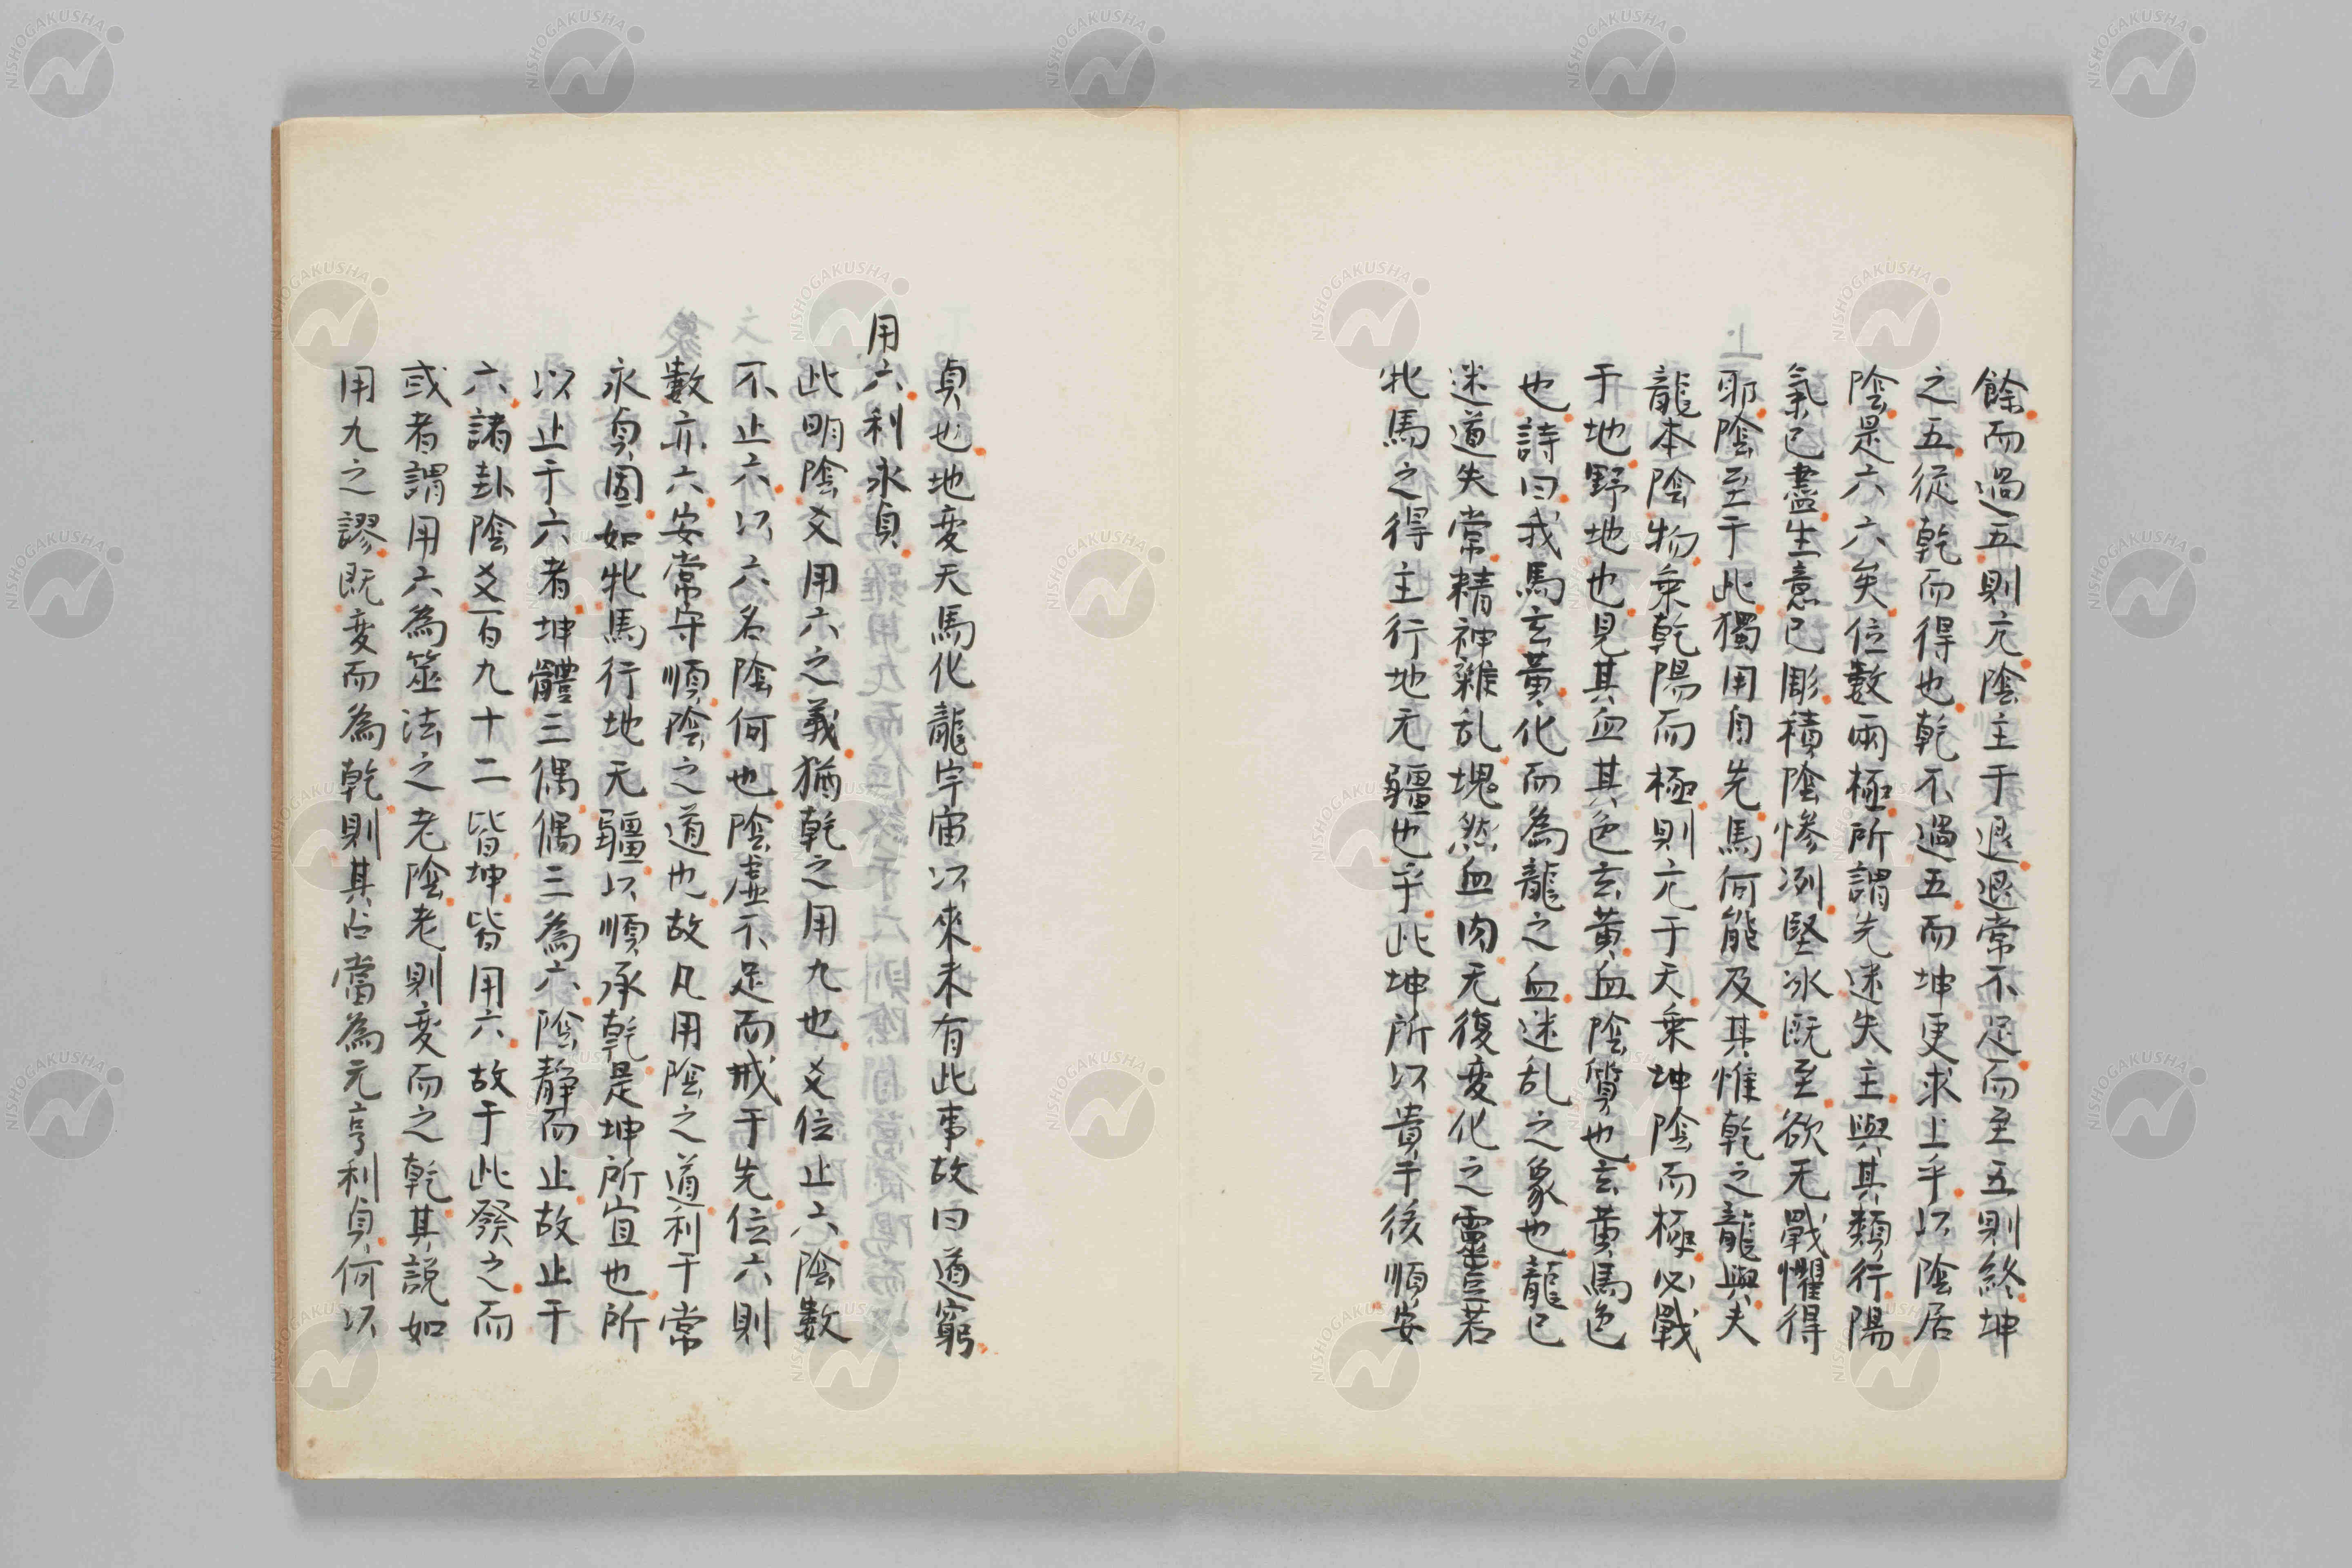 餘而過五則亢陰主于退退常不足而至五則終坤
之五從乾而得也乾不過五而坤更求上乎以陰居
陰是六六矣位數兩極所謂先迷失主與其類行陽
氣已盡生意已彫積陰慘冽堅冰既至欲无戰懼得
耶陰至于此獨用自先馬何能及其惟乾之龍與夫
龍本陰物乘乾陽而極則亢于天乘坤陰而極必戰
于地野地也見其血其色玄黃血陰質也玄黃馬色
也詩曰我馬玄黃化而為龍之血迷乱之象也龍已
迷道失常精神雜乱塊然血肉无復変化之靈豈若
牝馬之得主行地无疆也乎此坤所以貴于後順安
貞也地変天馬化龍宇宙以來未有此事故曰道窮
用六利永貞
此明陰爻用六之義猶乾之用九也爻位止六陰數
不止六以六名陰何也陰虛不足而戒于先位六則
數亦六安常守順陰之道也故凡用陰之道利于常
永貞固如牝馬行地无疆以順承乾是坤所宜也所
以止于六者坤體三偶偶三為六陰靜而止故止于
六諸卦陰爻百九十二皆坤皆用六故于此發之而
或者謂用六為筮法之老陰老則変而之乾其說如
用九之謬既変而為乾則其占當為元亨利貞何以